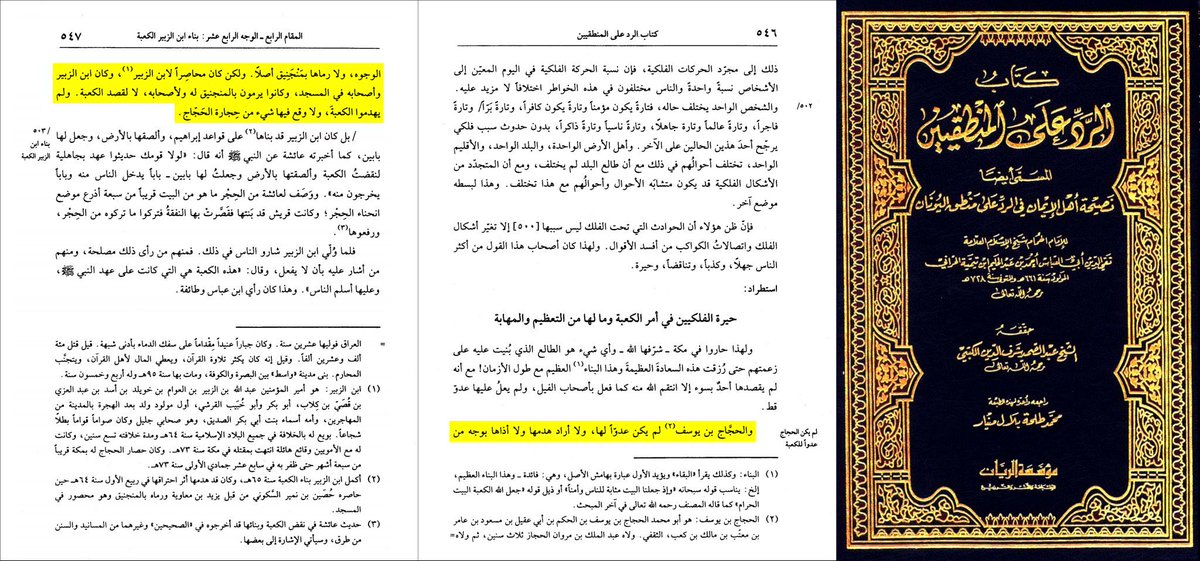 كتاب
الرد على المنطقيين
المسمى أيضا
نصيحة أهل الإيمان في الرد على منطق اليونان
للإمام الهمام شيخ الإسلام العلامة
تقي الدين أبي العباس أحمد بن عبد الحليم ابن تيمية الحراني
المولود سنة ٦٦١هـ والمتوفى سنة ٧٢٨هـ
رحمه الله تعالى
حققه
الشيخ عبد الصمد شرف الدين الكتبي
رحمه الله تعالى
راجعه وأعده للطبع
محمد طلحة بلال منيار
مؤسسة الريان
٥٤٦
كتاب الرد على المنطقيين
ذلك إلى مجرّد الحركات الفلكية، فإن نسبة الحركة الفلكية في اليوم المعيّن إلى
الأشخاص نسبةً واحدةً والناس مختلفون في هذا الخواطر اختلافاً لا مزيد عليه.
٥٠٢/
والشخص الواحد يختلف حاله، فتارةً يكون مؤمناً وتارةً يكون كافراً، وتارةً بَرّاً/ وتارةً
فاجراً، وتارةً عالماً وتارة جاهلاً، وتارةً ناسياً وتارةً ذاكراً، بدون حدوث سبب فلكي
يرجّح أحدَ هذين الحالين على الآخر. وأهل الأرض الواحدة، والبلد الواحد، والأقليم
الواحد، تختلف أحوالُهم في ذلك مع أن طالع البلد لم يختلف، ومع أن المتجدّد من
الأشكال الفلكية قد يكون متشابهَ الأحوال وأحوالُهم مع هذا تختلف. ولهذا بسطه
موضع آخر.
فإنّ ظن هؤلاء أن الحوادث التي تحت الفلك ليس سببها [٥٠٠] إلا تغيّر أشكال
الفلك واتصالاتُ الكواكب من أفسد الأقوال. ولهذا كان أصحاب هذا القول من أكثر
الناس جهلاً، وكذباً، وتناقضاً، وحيرة.
استطراد:
حيرة الفلكيين في أمر الكعبة وما لها من التعظيم والمهابة
ولهذا حاروا في مكة ـ شرّفها الله ـ وأي شيء هو الطالع الذي بُنيت عليه على
زعمتهم حتى رُزقت هذه السعادة العظيمةً وهذا البناء(١) العظيم مع طول الأزمان! مع أنه
لم يقصدها أحدٌ بسوء إلا انتقم الله منه كما فعل بأصحاب الفيل، ولم يعلُ عليها عدوّ
قط.
لم يكن الحجاج
عدواً للكعبة
والحجَّاج بن يوسف(٢) لم يكن عدوّاً لها، ولا أراد هدمها ولا أذاها بوجه من
(١) البناء: وكذلك يقرأ «البقاء» ويؤيد الأول عبارة بهامش الأصل، وهي: فائدة ـ وهذا البناء العظيم،
إلخ: يناسب قوله سبحانه «وإذ جعلنا البيت مثابة للناس وأمناً» أو ذيل قوله «جعل الله الكعبة البيت
الحرام» كما قاله المصنف رحمه الله تعالى في آخر المبحث.
(٢) الحجاج بن يوسف: هو أبو محمد الحجاج بن يوسف بن الحكم بن أبي عقيل بن مسعود بن عامر
بن معتّب بن مالك بن كعب، الثقفي. ولاه عبد الملك بن مروان الحجاز ثلاث سنين، ثم ولاه=
المقام الرابع ـ الوجه الرابع عشر: بناء ابن الزبير الكعبة
٥٤٧
الوجوه، ولا رماها بمَنْجَنِيق أصلاً. ولكن كان محاصِراً لابن الزبير(١)، وكان ابن الزبير
وأصحابه في المسجد، وكانوا يرمون بالمنجنيق له ولأصحابه، لا لقصد الكعبة. ولم
يهدموا الكعبةَ، ولا وقع فيها شيء من حِجارة الحَجّاج.
٥٠٣/
بناء ابن
الزبير الكعبة
/ بل كان ابن الزبير قد بناها(٢) على قواعد إبراهيم، وألصقها بالأرض، وجعل لها
بابين، كما أخبرته عائشة عن النبي ﷺ أنه قال: «لولا قومك حديثوا عهد بجاهلية
لنقضتُ الكعبة وألصقتها بالأرض وجعلتُ لها بابين ـ باباً يدخل الناس منه وباباً
يخرجون منه». ووَصَف لعائشة من الحِجْر ما هو من البيت قريباً من سبعة أذرع موضع
انحناء الحِجْر؛ وكانت قريش قد بَنَتها فقَصَّرتْ بها النفقةُ فتركوا ما تركوه من الحِجْر،
ورفعوها(٣).
فلما وُلّي ابن الزبير شاور الناس في ذلك. فمنهم من رأى ذلك مصلحة، ومنهم
من أشار عليه بأن لا يفعل، وقال: «هذه الكعبة هي التي كانت على عهد النبي ﷺ،
وعليها أسلم الناس». وهذا كان رأي ابن عباس وطائفة.
= العراق فوليها عشرين سنة. وكان جباراً عنيداً مِقْداماً على سفك الدماء بأدنى شبهة. قيل قتل مئة
ألف وعشرين ألفاً. وقيل إنه كان يكثر تلاوة القرآن، ويعطي المال لأهل القرآن، ويتجنّب
المحارم. بنى مدينة «واسط» بين البصرة والكوفة، ومات بها سنة ٩٥هـ وله أربع وخمسون سنة.
(١) ابن الزبير: هو أمير المؤمنين عبد الله بن الزبير بن العوام بن خويلد بن أسد بن عبد العزي
بن قُصَيّ بن كِلاب، أبو بكر وأبو خُبَيْب القرشي، أول مولود ولد بعد الهجرة بالمدينة من
المهاجرين، وأمه أسماء بنت أبي بكر الصديق، وهو صحابي جليل وكان صواماً قواماً بطلاً
شجاعاً. بويع له بالخلافة في جميع البلاد الإسلامية سنة ٦٤هـ ومدة خلافته تسع سنين، وكانت
له مع الأمويين وقائع هائلة انتهت بمقتله في مكة سنة ٧٣هـ. وكان حصار الحجاج له بمكة قريباً
من سبعة أشهر حتى ظفر به في سابع عشر جمادي الأولى سنة ٧٣هـ.
(٢) أكمل ابن الزبير بناء الكعبة سنة ٦٥هـ، وكان قد هدمها أثر احتراقها في ربيع الأول سنة ٦٤هـ حين
حاصره حُصَين بن نمير السَّكوني من قبل يزيد بن معاوية ورماه بالمنجنيق وهو محصور في
المسجد.
(٣) حديث عائشة في نقض الكعبة وبنائها قد أخرجوه في «الصحيحين» وغيرهما من المسانيد والسنن
من طرق، وسيأتي الإشارة إلى بعضها.